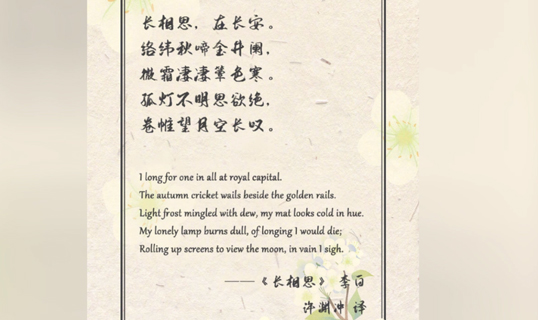 长相思，在长安。
络纬秋啼金井阑，
微霜凄凄簟色寒。
孤灯不明思欲绝，
卷帷望月空长叹。
I long for one in all at royal capital.
The autumn cricket wails beside the golden rails.
Light frost mingled with dew, my mat looks cold in hue.
My lonely lamp burns dull, of longing I would die;
Rolling up screens to view the moon, in vain I sigh.
——《长相思》 李白
许渊冲 译